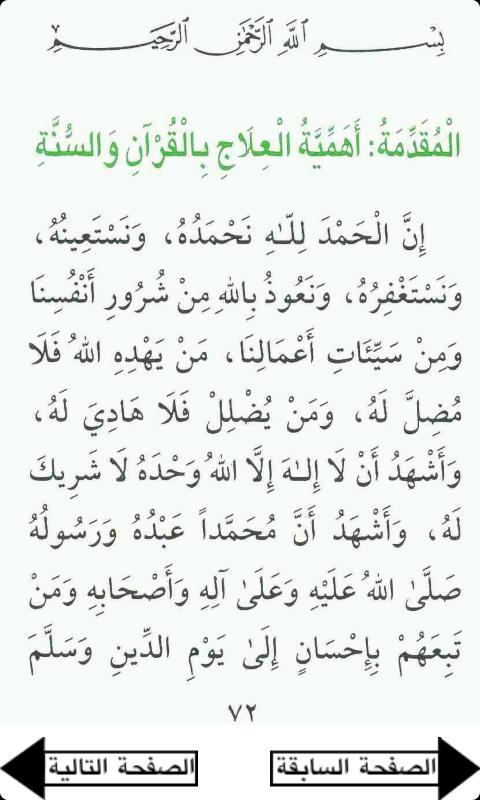 بِسْمِ ٱللَّهِ ٱلرَّحْمَٰنِ ٱلرَّحِيمِ
الْمُقَدِّمَةُ: أَهَمِّيَّةُ الْعِلَاجِ بِالْقُرْآنِ وَالسُّنَّةِ
إِنَّ الْحَمْدَ لِلَّـهِ نَحْمَدُهُ، وَنَسْتَعِينُهُ،
وَنَسْتَغْفِرُهُ، وَنَعُوذُ بِاللهِ مِنْ شُرُورِ أَنْفُسِنَا
وَمِنْ سَيِّئَاتِ أَعْمَالِنَا، مَنْ يَهْدِهِ اللهُ فَلَا
مُضِلَّ لَهُ، وَمَنْ يُضْلِلْ فَلَا هَادِيَ لَهُ،
وَأَشْهَدُ أَنْ لَا إِلـٰهَ إِلَّا اللهُ وَحْدَهُ لَا شَرِيكَ
لَهُ، وَأَشْهَدُ أَنَّ مُحَمَّداً عَبْدُهُ وَرَسُولُهُ
صَلَّىٰ اللهُ عَلَيْهِ وَعَلَىٰ آلِهِ وَأَصْحَابِهِ وَمَنْ
تَبِعَهُمْ بِإِحْسَانٍ إِلَىٰ يَوْمِ الدِّينِ وَسَلَّمَ
٧٢
الصفحة السابقة
الصفحة التالية